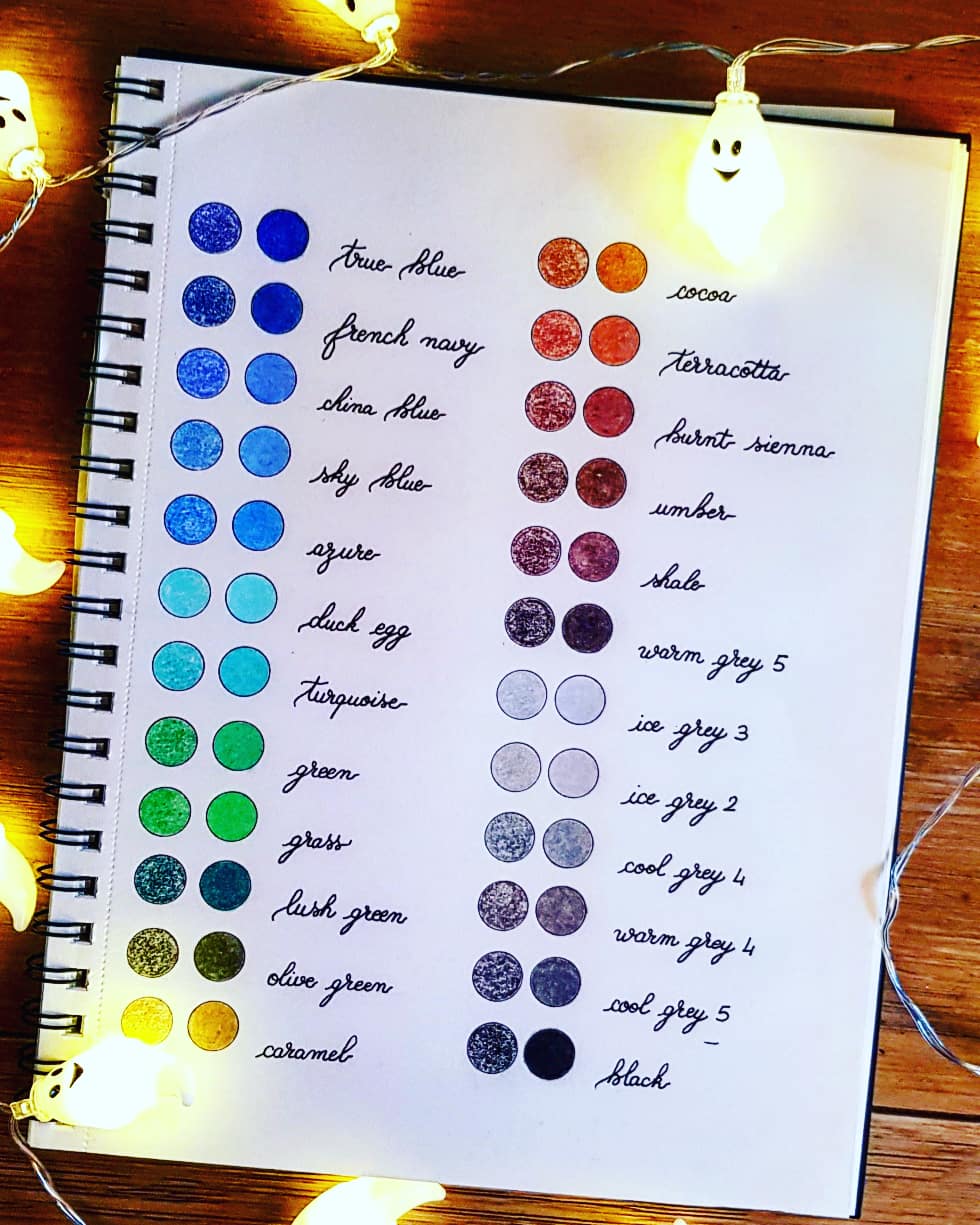 true blue
french navy
china blue
sky blue
azure
duck egg
turquoise
green
grass
lush green
olive green
caramel
cocoa
terracotta
burnt sienna
umber
shale
warm grey 5
ice grey 3
ice grey 2
cool grey 4
warm grey 4
cool grey 5
black